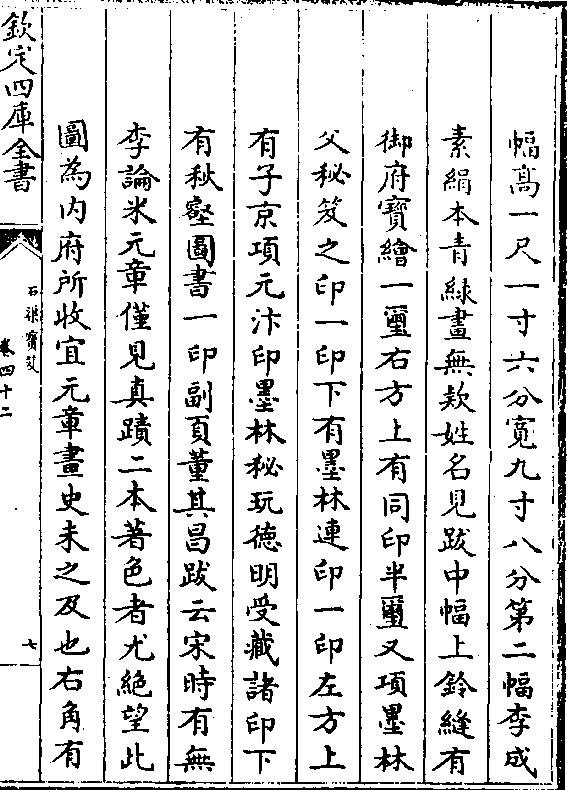 幅髙一尺一寸六分寛九寸八分第二幅李成
素絹本青緑畫無款姓名見跋中幅上鈐縫有
御府寶繪一璽右方上有同印半璽又項墨林
父秘笈之印一印下有墨林連印一印左方上
有子京項元汴印墨林秘玩徳明受藏諸印下
有秋壑圖書一印副頁董其昌跋云宋時有無
李論米元章僅見真蹟二本著色者尤絶望此
圖為内府所收宜元章畫史未之及也右角有
欽定四庫全書
石渠寶笈
卷四十二
七